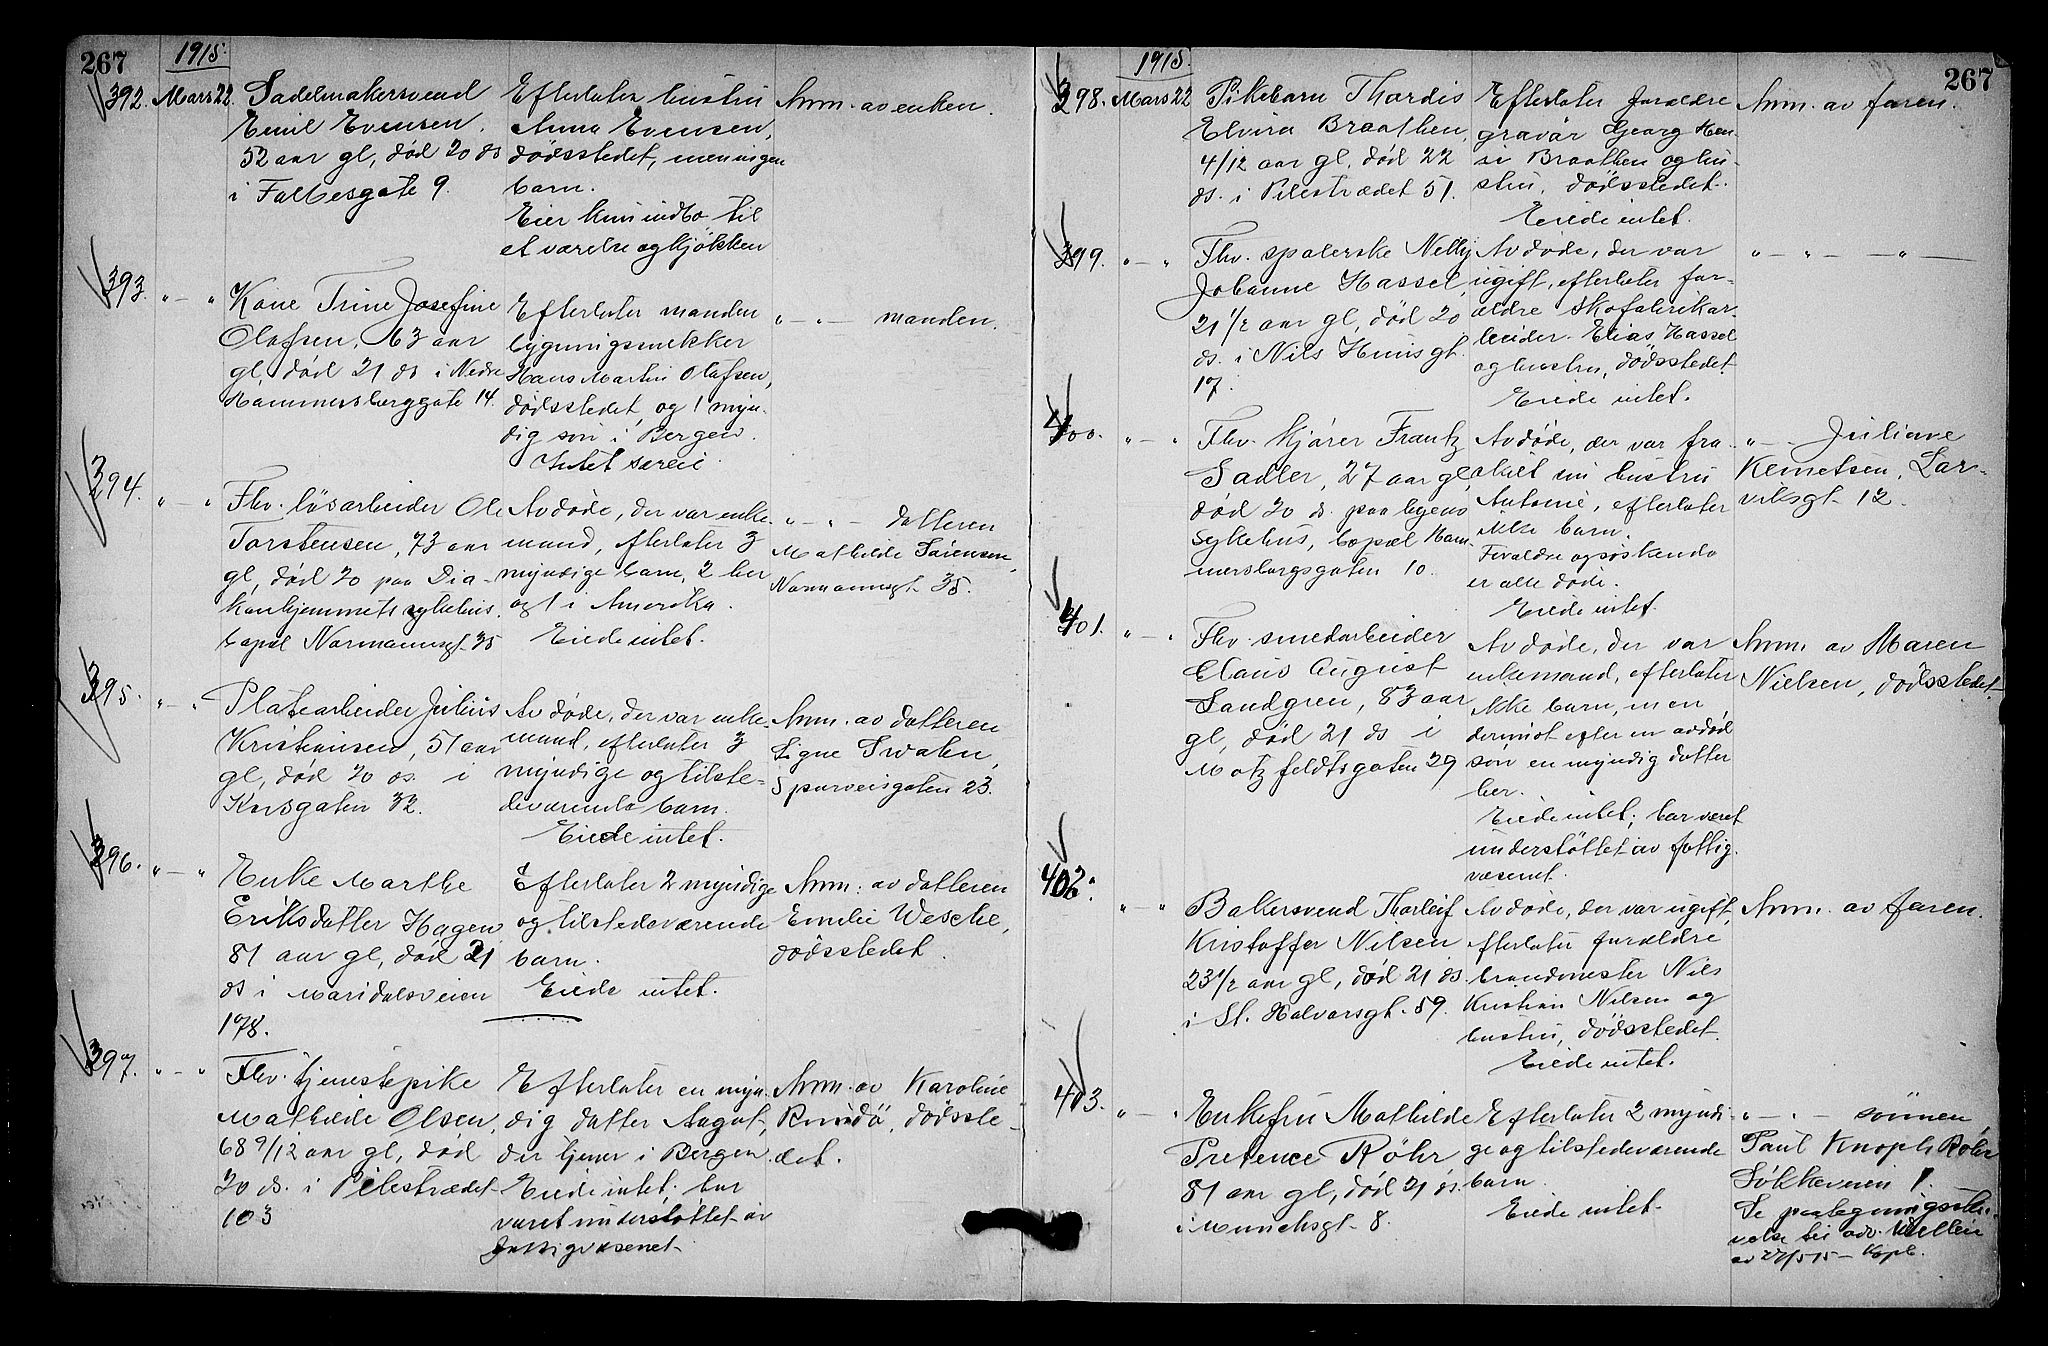 267
1915.
392. Mars 22.
Sadelmakersvend
Emil Evensen,
52 aar gl, død 20 ds
i Falbesgate 9.
Efterlater hustru
Anna Evensen,
dödsstedet, men ingen
barn.
Eier kun indbo til
et værelse og kjökken
Anm. av enken.
393. " — "
Kone Trine Josefine
Olafsen, 63 aar
gl, död 21 ds i Nedre
Hammersborggate 14.
Efterlater manden
bygningssnekker
Hans Martin Olafsen,
dödsstedet og 1 myn-
dig sön i Bergen.
Intet særeie.
" — " — manden.
394. " — "
Fhv. løsarbeider Ole
Torstensen, 73 aar
gl, död 20 paa Dia-
konhjemmets sykehus.
bopæl Normannsgt 35
Avdöde, der var enke-
mand, efterlater 3
myndige barn, 2 her
og 1 i Amerika.
Eiede intet.
" — " — datteren
Mathilde Sörensen,
Normannsgt 35.
395. " — "
Platearbeider Julius
Kristiansen, 51 aar
gl, död 20 ds. i
Korsgaten 32.
Avdöde, der var enke-
mand, efterlater 3
myndige og tilste-
deværende barn.
Eiede intet.
Anm. av datteren
Signe Swahn,
Sporveisgaten 23.
396. " — "
Enke Marthe
Eriksdatter Hagen
81 aar gl, död 21
ds i Maridalsveien
178.
Efterlater 2 myndige
og tilstedeværende
barn.
Eiede intet.
Anm. av datteren
Emilie Wesche,
dödsstedet.
397. " — "
Fhv. tjenestepike
Mathilde Olsen,
68 9/12 aar gl, död
20 ds. i Pilestrædet
103
Efterlater en myn-
dig datter Aagot,
der tjener i Bergen.
Eiede intet; har
været understöttet av
fattigvæsenet.
Anm. av Karoline
dödsste-
det.
267
1915.
398. Mars 22
Pikebarn Thordis
Elvira Braathen,
4/12 aar gl, död 22
ds. i Pilestrædet 51.
Efterlater forældre
gravör Georg Hen-
ri Braathen og hu-
stru, dödsstedet.
Eiede intet.
Anm. av faren.
399. " — "
Fhv. spolerske Nelly
Johanne Hassel,
21 1/2 aar gl, död 20
ds. i Nils Huusgt.
17.
Avdöde, der var
ugift, efterlater for-
ældre skofabrikar-
beider Elias Hassel
og hustru, dödsstedet.
Eiede intet.
" — " — " —
400. " — "
Fhv. kjörer Frantz
Sadler, 27 aar gl
död 20 ds. paa byens
sykehus, bopæl Ham-
mersborgsgaten 10.
Avdöde, der var fra-
skilt sin hustru
Antonie, efterlater
ikke barn.
Forældre og söskende
er alle döde.
Eiede intet.
" — Juliane
Klemetsen, Lar-
viksgt 12.
401. " — "
Fhv. smedarbeider
Claus August
Sandgren, 83 aar
gl, död 21 ds i
Motzfeldtsgaten 29
Avdöde, der var
enkemand, efterlater
ikke barn, men
derimot efter en avdöd
sön en myndig datter
her.
Eiede intet; har været
understöttet av fattig-
væsenet.
Anm. av Maren
Nielsen, dödsstedet.
402. " — "
Bakersvend Thorleif
Kristoffer Nilsen
23 1/2 aar gl, död 21 ds.
i St. Halvorsgt. 59.
Avdöde, der var ugift,
efterlater forældre
brandmester Nils
Kristian Nilsen og
hustru, dödsstedet.
Eiede intet.
Anm. av faren.
403. " — "
Enkefru Mathilde
Pretence Röhr
81 aar gl, död 21 ds.
i Munchsgt 8.
Efterlater 2 myndi-
ge og tilstedeværende
barn.
Eiede intet.
" — " — sönnen
Paul Knoph Röhr
Løkkeveien 1.
Se paategningsskri-
velse til adv.
av 27/5 15 —